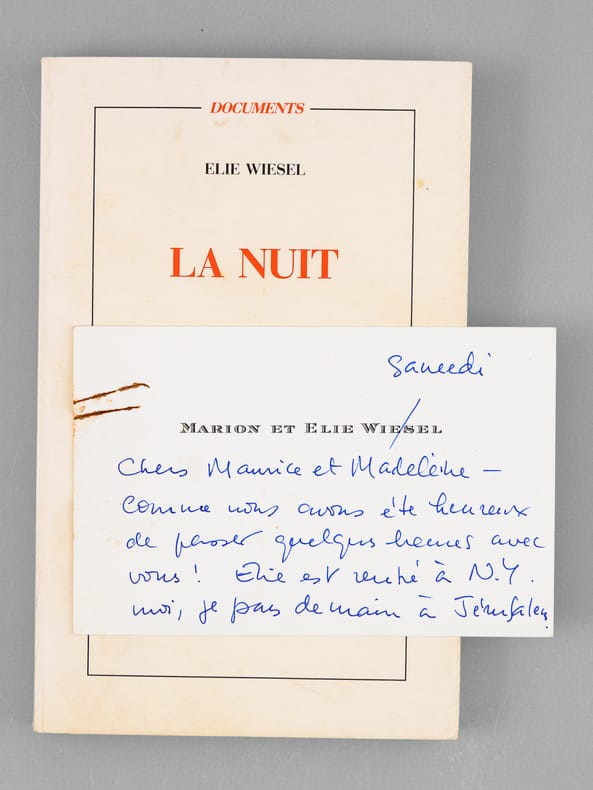 DOCUMENTS
ELIE WIESEL
LA NUIT
Samedi
MARION ET ELIE WIESEL
Chers Maurice et Madeleine –
Comme nous avons été heureux
de passer quelques heures avec
vous ! Elie est rentré à N.Y.
moi, je pars demain à Jérusalem.